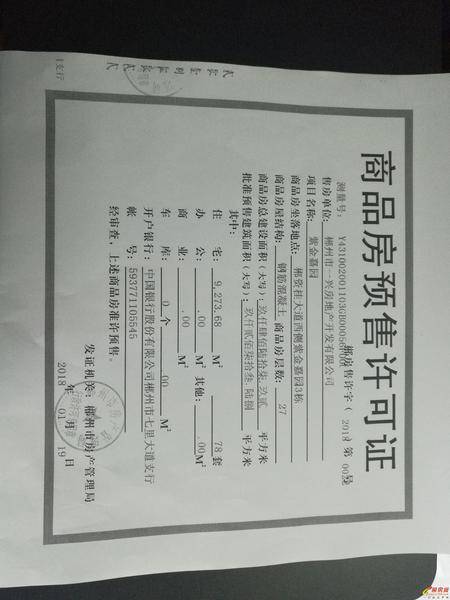 商品房预售许可证
郴房售许字(2018)第
测量号:
售房单位: 郴州市一兴房地产开发有限公司
项目名称: 紫金嘉园
商品房坐落地点: 郴资桂大道西侧紫金嘉园3栋
商品房屋结构: 钢筋混凝土 商品房层数: 27
商品房总建设面积(大写): 玖仟肆佰陆拾柒.玖贰 平方米
批准预售建筑面积(大写): 玖仟贰佰柒拾叁.陆捌 平方米
其中:
住宅: 9,273.68 M² 78 套
办公: .00 M² 其他: .00 M²
商业: .00 M²
车库: 0 个 .00 M²
开户银行: 中国银行股份有限公司郴州市七里大道支行
帐号: 593771105545
经审查,上述商品房准许预售。
发证机关: 郴州市房产管理局
2018 年 01 月 19 日